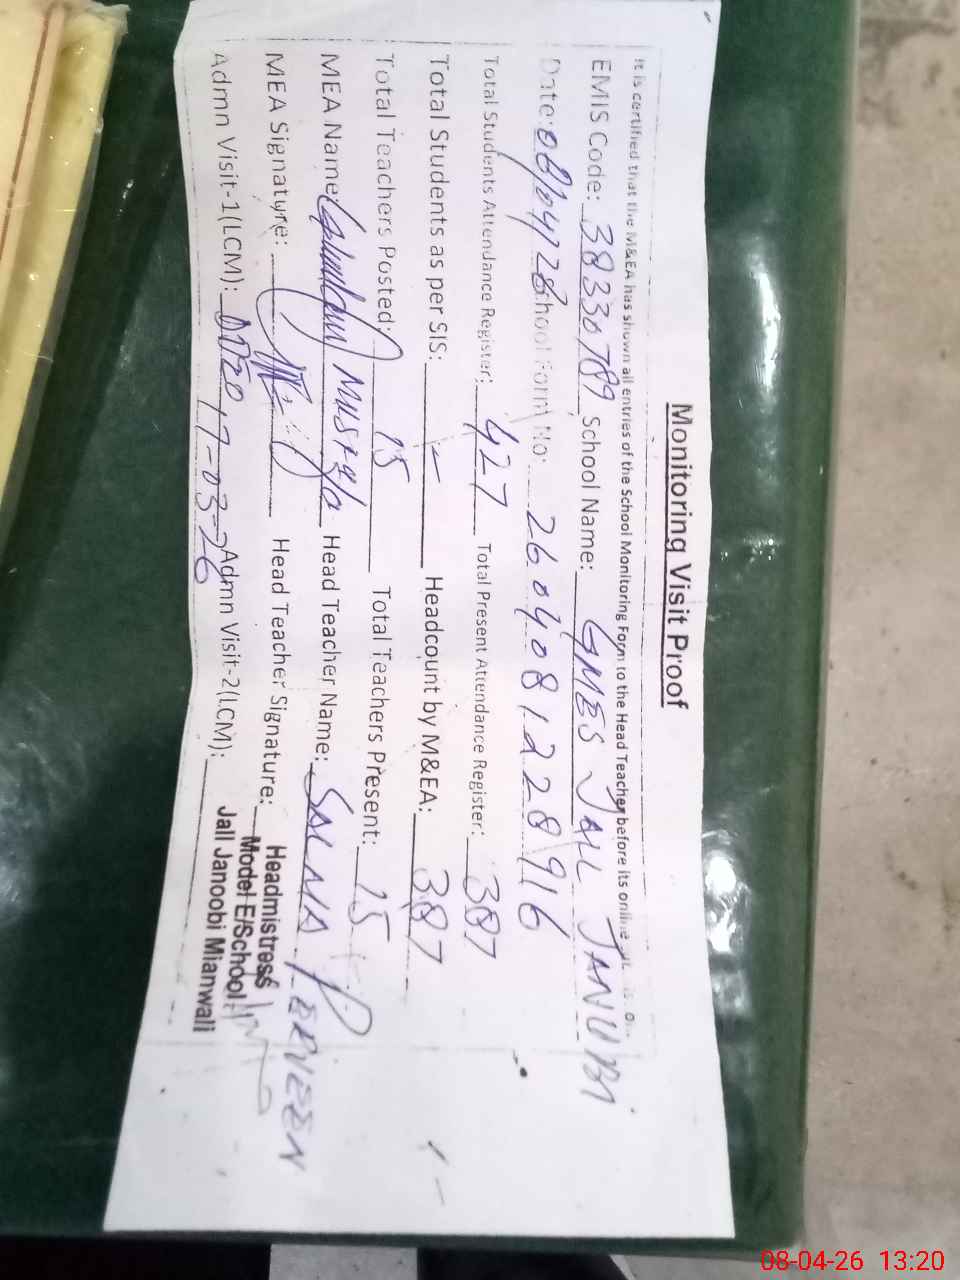 Monitoring Visit Proof
It is certified that the M&EA has shown all entries of the School Monitoring Form to the Head Teacher before its online
EMIS Code: 38330789 School Name: GMES JAL JANUBI
Date: 08/04/26 School Form No: 2604081228916
Total Students Attendance Register: 427 Total Present Attendance Register: 387
Total Students as per SIS: – Headcount by M&EA: 387
Total Teachers Posted: 15 Total Teachers Present: 15
MEA Name: Mustafa Head Teacher Name: SALMA PERVEEN
MEA Signature: Head Teacher Signature:
Headmistress
Model E/School
Jall Janoobi Mianwali
Admn Visit-1(LCM): 17-03-26 Admn Visit-2(LCM):
08-04-26 13:20